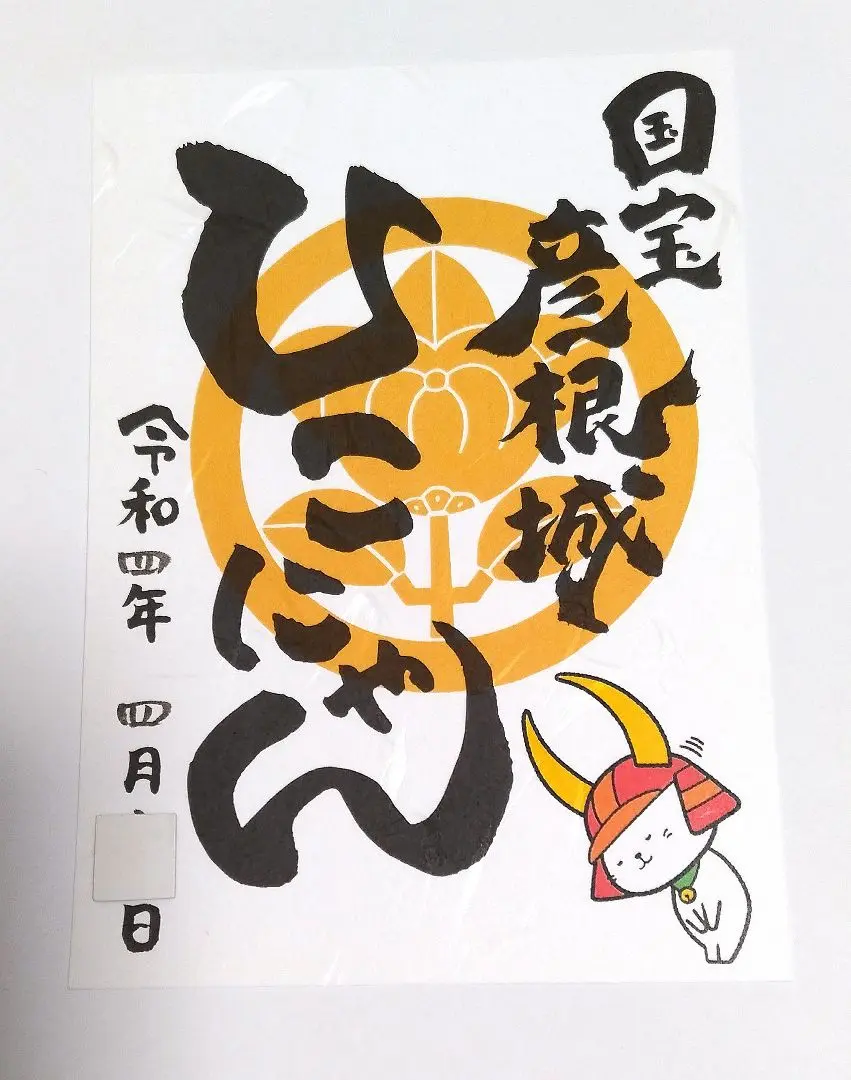 国宝
彦根城
ひこにゃん
令和四年 四月 日